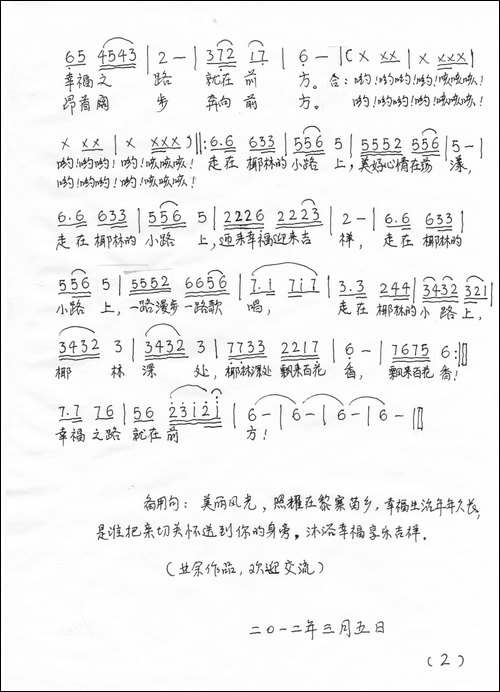 65 4543 | 2 - | 372 17 | 6 - | ( X XX | X XXX |
幸福之 路 就在前 方。合:哟!哟哟!哟!咳咳咳!
昂首阔 步 奔向前 方。 哟!哟哟!哟!咳咳咳!
X XX | X XXX ) ‖: 6.6 633 | 556 5 | 5552 556 | 5 - |
哟!哟哟!哟!咳咳咳! 走在椰林的小路 上,美好心情在荡 漾,
哟!哟哟!哟!咳咳咳!
6.6 633 | 556 5 | 2226 2223 | 2 - | 6.6 633 |
走在椰林的 小路 上,迎来幸福迎来吉 祥, 走在椰林的
556 5 | 5552 6656 | 7.1 717 | 3.3 244 | 3432 321 |
小路 上,一路漫步一路歌 唱, 走在椰林的小路上,
3432 3 | 3432 3 | 7733 2217 | 6 - | 7675 6 :‖
椰 林 深 处,椰林深处飘来百花 香, 飘来百花 香!
7.7 76 | 56 2312i | 6 - | 6 - | 6 - | 6 - ‖
幸福之路 就在前 方!
备用句: 美丽风光,照耀在黎寨苗乡,幸福生活年年久长,
是谁把亲切关怀送到你的身旁。沐浴幸福享乐吉祥.
(业余作品,欢迎交流)
二〇一二年三月五日
(2)